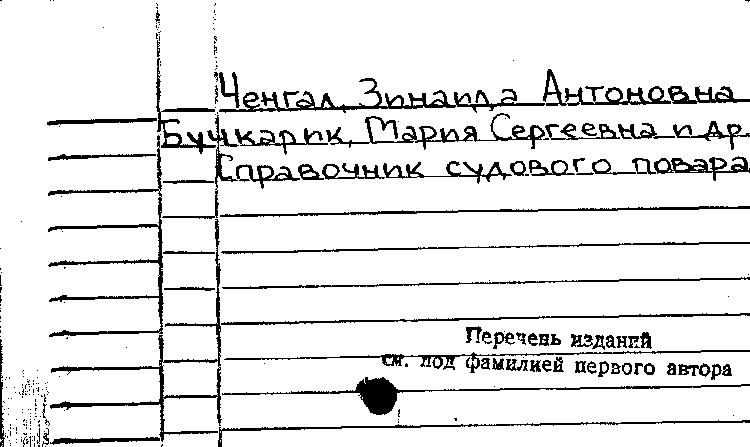 Ченгал, Зинаида Антоновна
Бучкарик, Мария Сергеевна и др.
Справочник судового повара
Перечень изданий
см. под фамилией первого автора